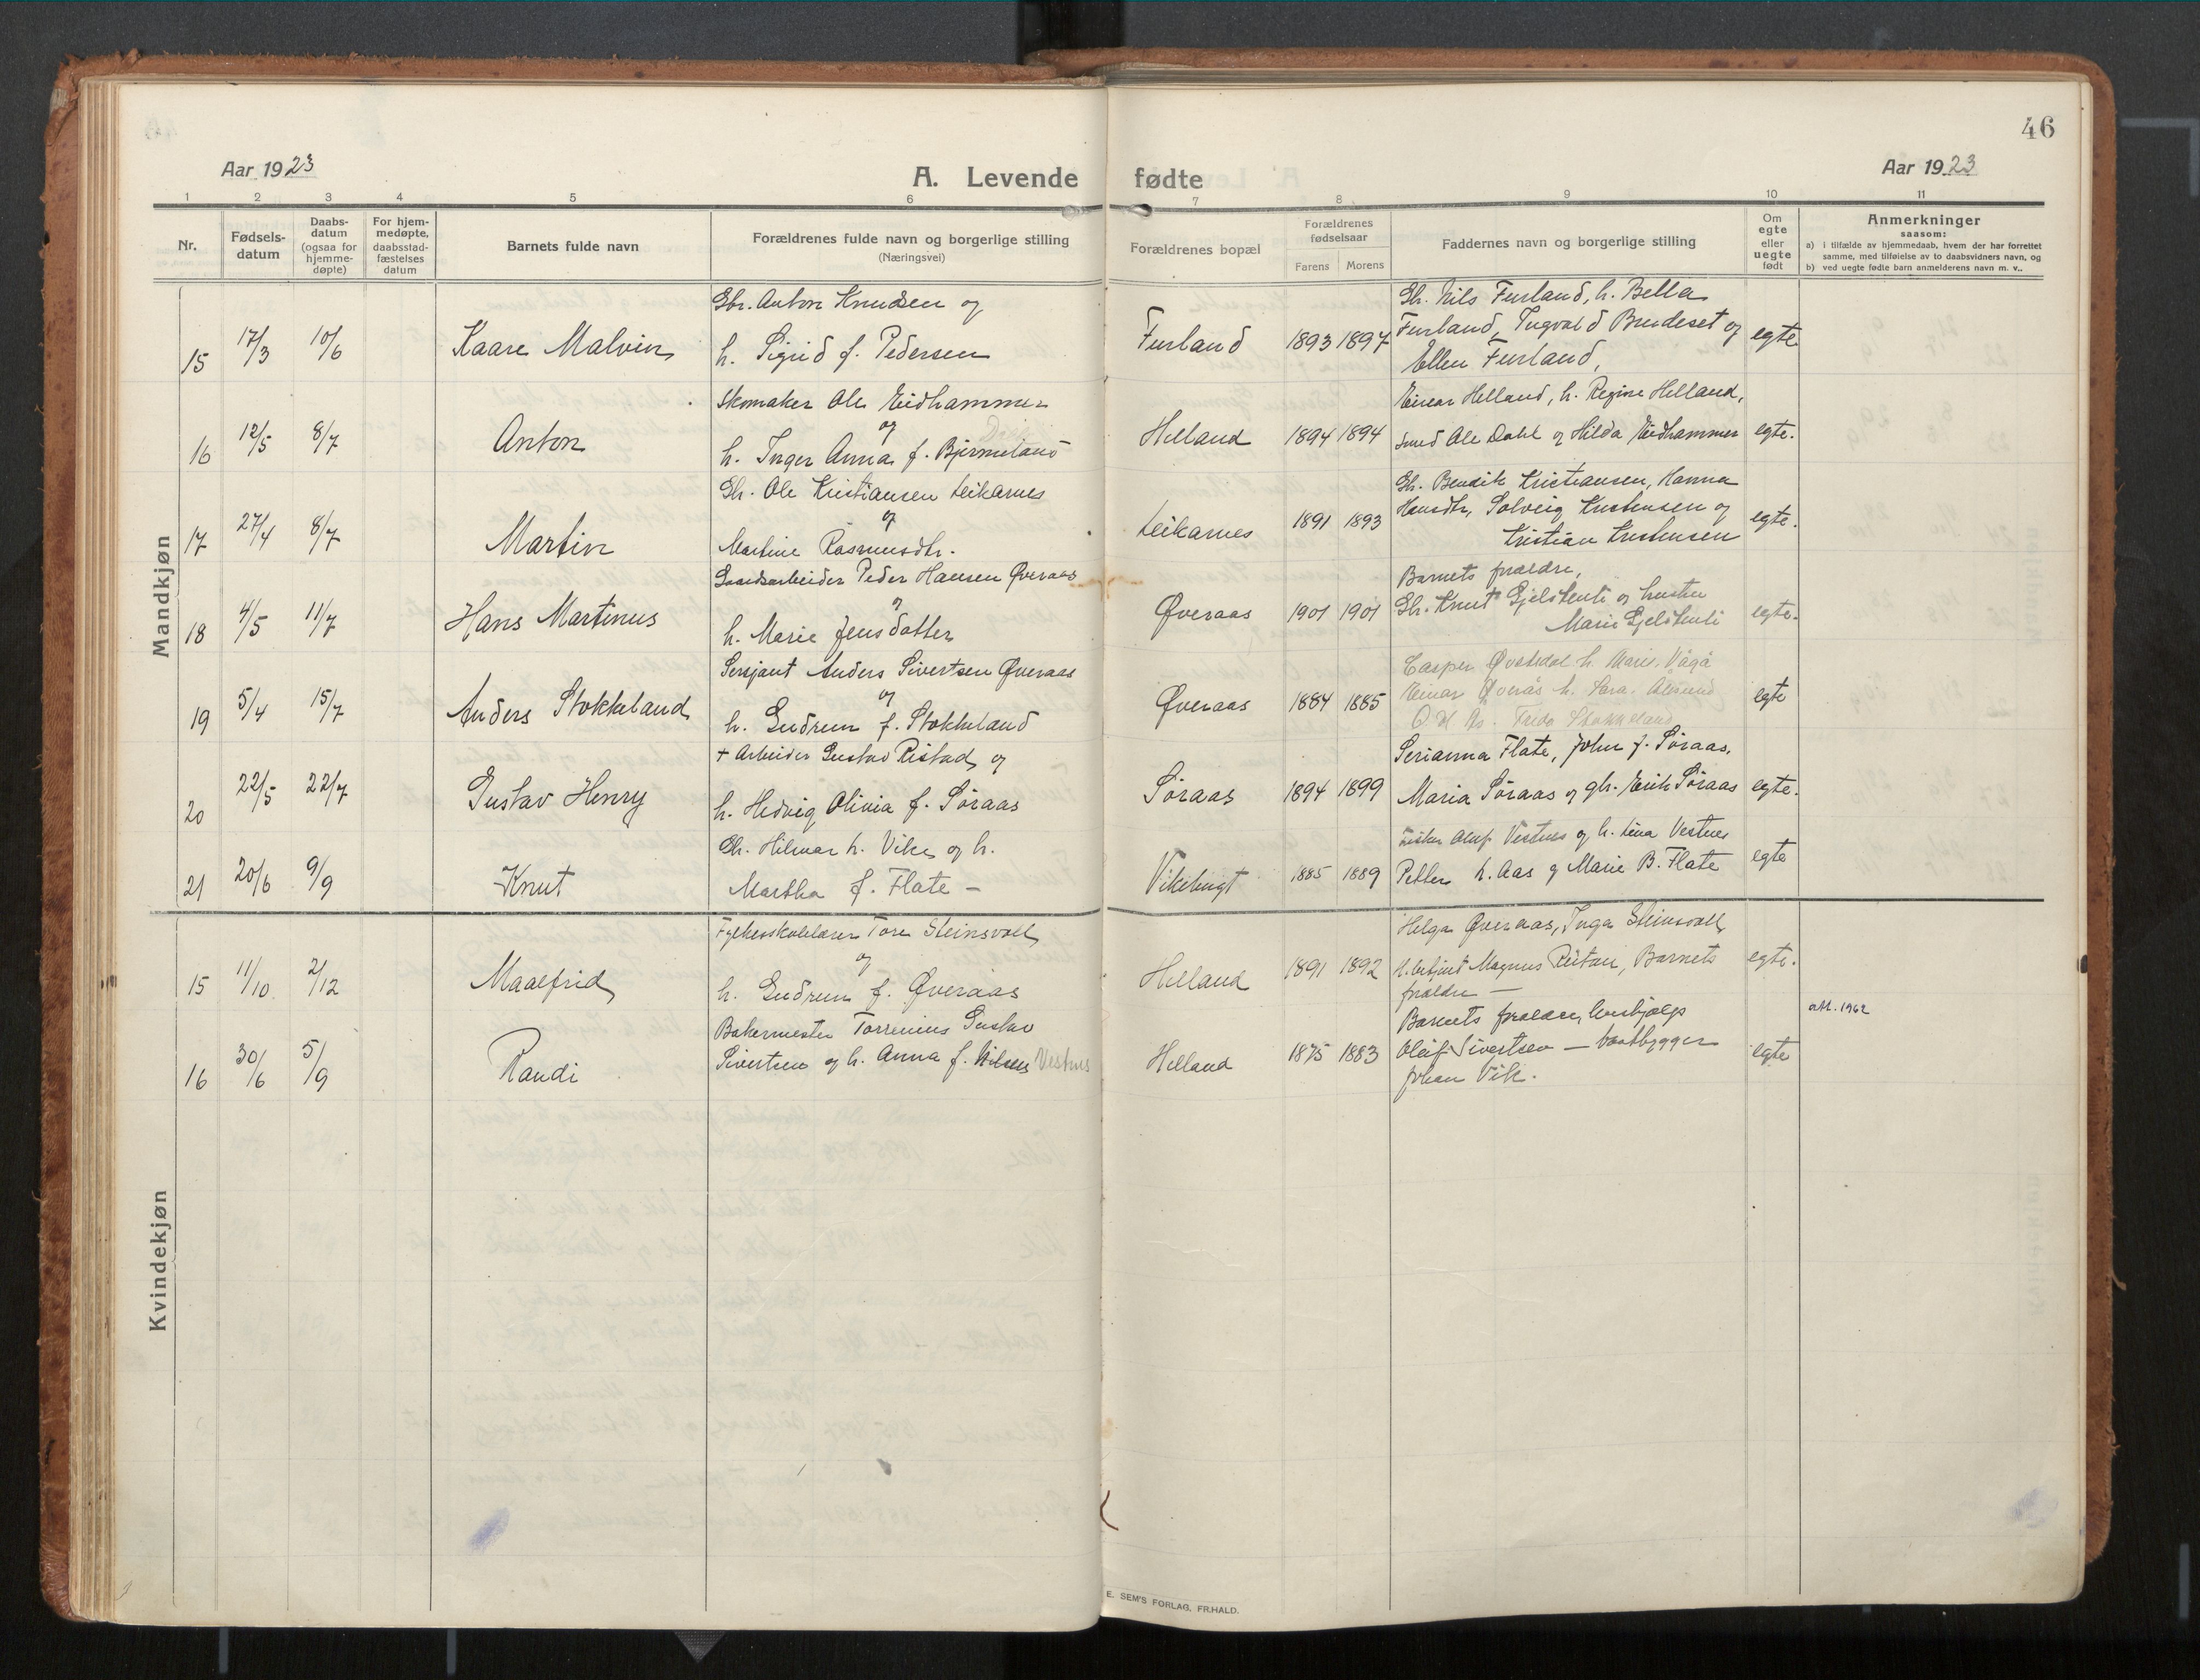 46
Aar 1923
A. Levende fødte
Aar 1923
1 2 3 4 5 6 7 8 9 10 11
Nr.
Fødsels-
datum
Daabs-
datum
(ogsaa for
hjemme-
døpte)
For hjem-
medøpte,
daabsstad-
fæstelses
datum
Barnets fulde navn
Forældrenes fulde navn og borgerlige stilling
(Næringsvei)
Forældrenes bopæl
Forældrenes
fødselsaar
Farens Morens
Faddernes navn og borgerlige stilling
Om
egte
eller
uegte
født
Anmerkninger
saasom:
a) i tilfælde av hjemmedaab, hvem der har forrettet
samme, med tilføielse av to daabsvidners navn, og
b) ved uegte fødte barn anmelderens navn m. v..
Mandkjøn
15 17/3 10/6 Kaare Malvin
Gbr. Anton Knudsen og
h. Sigrid f. Pedersen
Furland 1893 1897
Gbr. Nils Furland, h. Bella
Furland, Ingvald Brudeset og
Ellen Furland,
egte
16 12/5 8/7 Anton
Skomaker Ole Eidhammer
og
h. Inger Anna f. Bjermeland
Helland 1894 1894
Einar Helland, h. Regine Helland,
Smed Ole Dahl og Hilda Eidhammer
egte.
17 27/4 8/7 Martin
Gbr. Ole Kristiansen Leikarnes
og
Martine Rasmusdtr.
Leikarnes 1891 1893
Gbr. Bendik Kristiansen, Hanna
Hansdtr, Solveig Kristensen og
Kristian Kristensen
egte.
18 4/5 11/7 Hans Martinus
Gaardsarbeider Peder Hansen Øveraas
og
h. Marie Jensdatter
Øveraas 1901 1901
Barnets forældre,
Gbr. Knut Gjelstenli og hustru
Marie Gjelstenli
egte.
19 5/4 15/7 Anders Stokkeland
Sersjant Anders Sivertsen Øveraas
og
h. Gudrun f. Stokkeland
Øveraas 1884 1885
Casper Øvstedal h. Marie, Vågå
Einar Øverås h. Sara. Ålesund
Stokkeland
egte
20 22/5 22/7 Gustav Henry
+ Arbeider Gustav Ristad og
h. Hedvig Olivia f. Søraas
Søraas 1894 1899
Serianna Flate, John J. Søraas,
Maria Søraas og gbr. Erik Søraas
egte.
21 20/6 9/9 Knut
Gbr. Hilmar h. Vike og h.
Martha f. Flate –
Vikebugt 1885 1889
Fisker Oluf Vestnes og h. Lina Vestnes
Petter h. Aas og Marie B. Flate
egte
Kvindekjøn
15 11/10 2/12 Maalfrid
Fylkesskolelærer Tore Steinsvoll
og
h. Gudrun f. Øveraas
Helland 1891 1892
Helga Øveraas, Inga Steinsvoll,
Magnus Reitan, Barnets
forældre –
egte.
16 30/6 5/9 Randi
Bakermester Torrenius Gustav
Sivertsen og h. Anna f. Nilsen Vestnes
Helland 1875 1883
Barnets forældre, hushjælp
Oluf Sivertsen – baatbygger
Johan Vik.
egte
att. 1962
E. SEM'S FORLAG, FR.HALD.